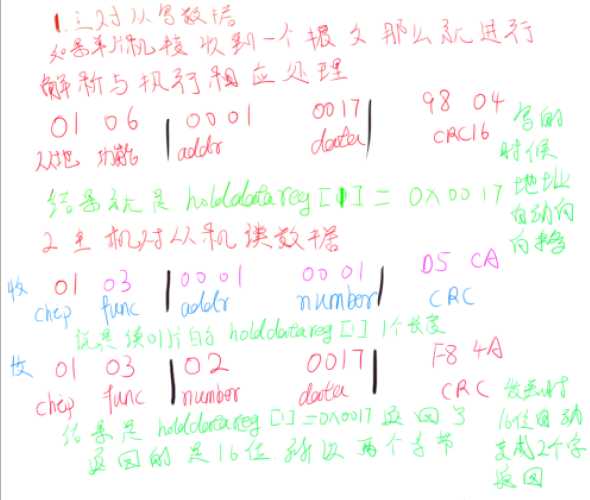 1.主对从写数据
如果单片机接收到一个报文那么就进行
解析与执行相应处理
01 06 | 0001 0017 | 98 04
从地 功能 addr data CRC16
写的
时候
地址
自动向
向
结果就是 holddatareg[1] = 0x0017
2 主机对从机读数据
收 01 03 | 0001 0001 | D5 CA
chep func addr number CRC
就是读01片的 holddatareg[1] 1个长度
收 01 03 | 02 0017 | F8 4A
chep func number data CRC
结果是 holddatareg[1]=0x0017 返回了
返回的是16位所以两个字节
发到时
16位自动
变成2个字
返回